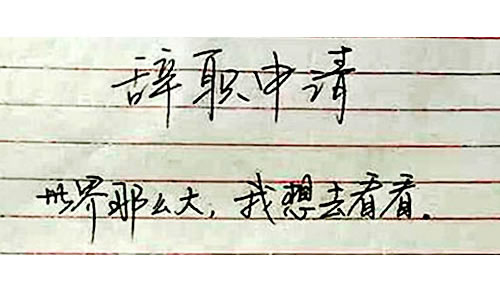 辞职申请
世界那么大，我想去看看。